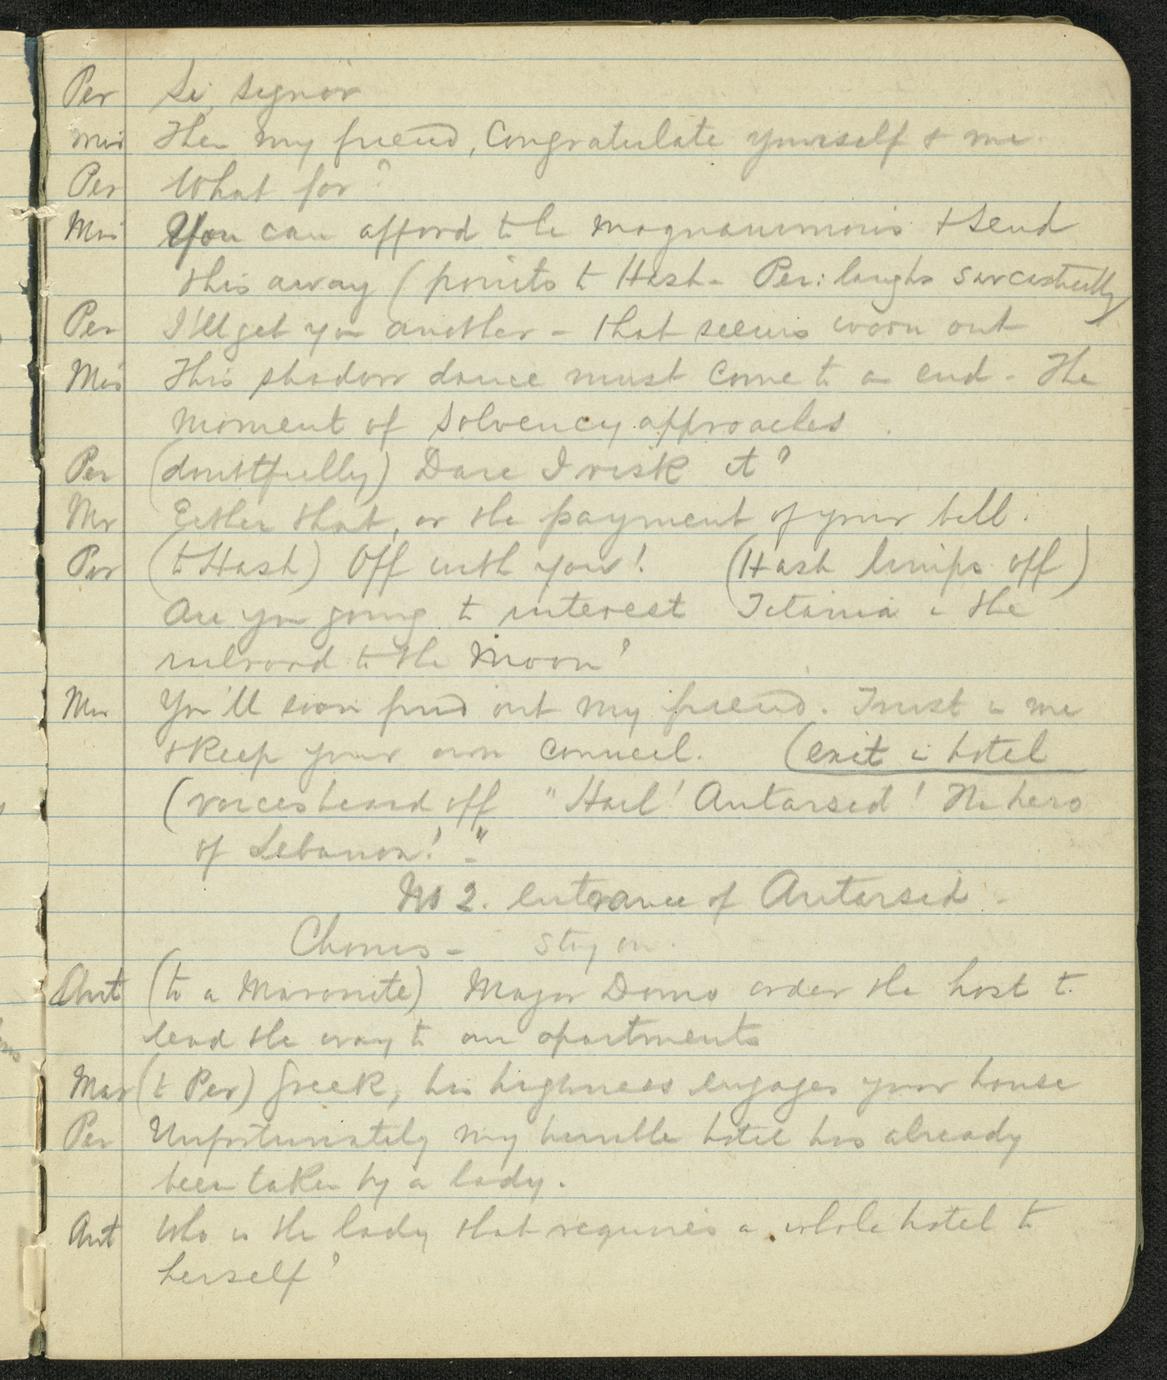 Per Si, Signor
Mis Then my friend, Congratulate yourself & me.
Per What for?
Mis You can afford to be magnanimous & send
this away (points to Hash - Per: laughs sarcastically)
Per I'll get you another - that seems worn out
Mis This shadow dance must come to an end - The
moment of Solvency approaches.
Per (doubtfully) Dare I risk it?
Mis Either that, or the payment of your bill.
Per (to Hash) Off with you! (Hash limps off)
Are you going to interest Titania in the
railroad to the Moon?
Mis You'll soon find out my friend. Trust in me
& Keep your own council. (exit in hotel
(voices heard off "Hail! Antarsid! The hero
of Lebanon!"
No 2. Entrance of Antarsid -
Chorus - Stay on.
Ant (to a Maronite) Major Domo order the host to
lead the way to our apartments
Mar (to Per) Greek, his highness engages your house
Per Unfortunately my humble hotel has already
been taken by a lady.
Ant Who is the lady that requires a whole hotel to
herself?